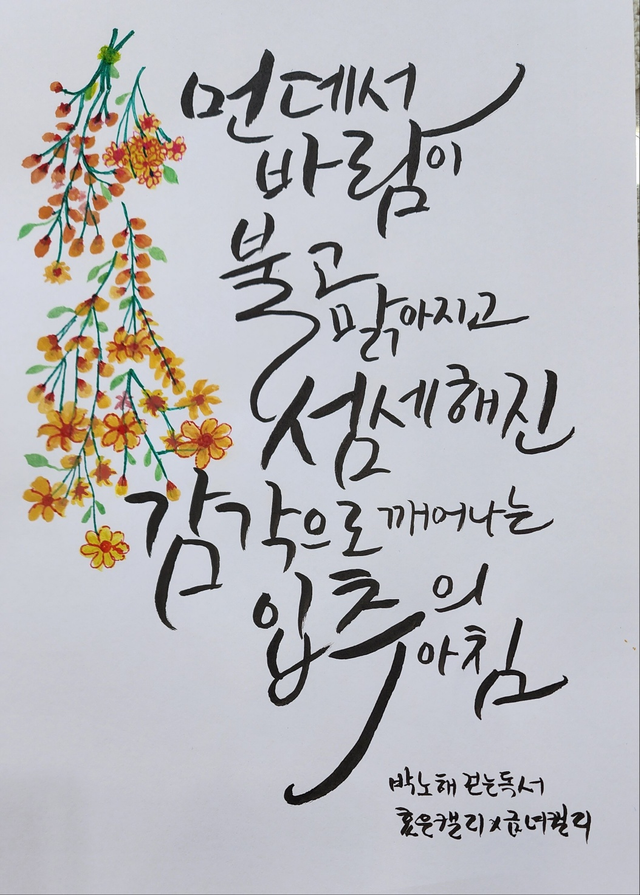 먼데서
바람이
불고
맑아지고
섬세해진
감각으로 깨어나는
입추의
아침
박노해 걷는독서
홍은캘리x금녀캘리